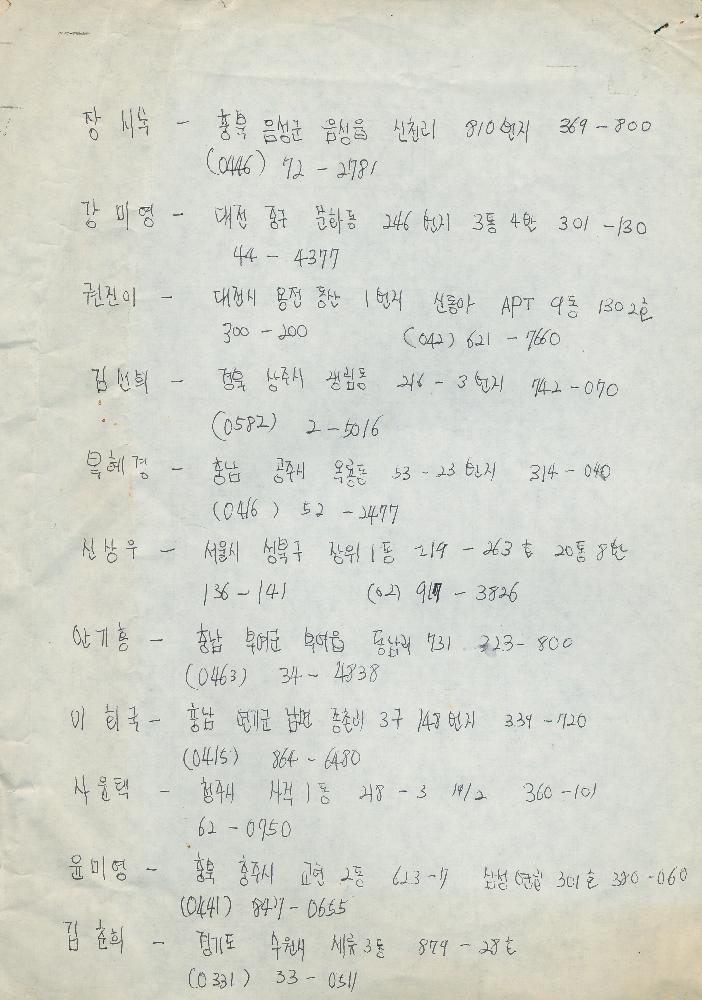 장 시숙 - 충북 음성군 음성읍 신천리 810번지 369-800
(0446) 72-2781
강 미영 - 대전 중구 문화동 246번지 3통 4반 301-130
44-4377
권진이 - 대전시 용전동산 1번지 신동아 APT 9동 1302호
300-200 (042) 621-7660
김선희 - 경북 상주시 생림동 216-3번지 742-070
(0582) 2-5016
복혜경 - 충남 공주시 옥룡동 53-23번지 314-040
(0416) 52-2477
신상우 - 서울시 성북구 장위1동 219-263호 20통 8반
136-141 (02) 917-3826
안기홍 - 충남 부여군 부여읍 동남리 731 323-800
(0463) 34-4838
이희국 - 충남 연기군 남면 종촌리 3구 148번지 339-720
(0415) 864-6480
사윤택 - 청주시 사직1동 218-3 360-101
62-0750
윤미영 - 충북 충주시 교현2동 623-7 삼성연립 301호 380-060
(0441) 847-0655
김춘희 - 경기도 수원시 세류3동 879-28호
(0331) 33-0511